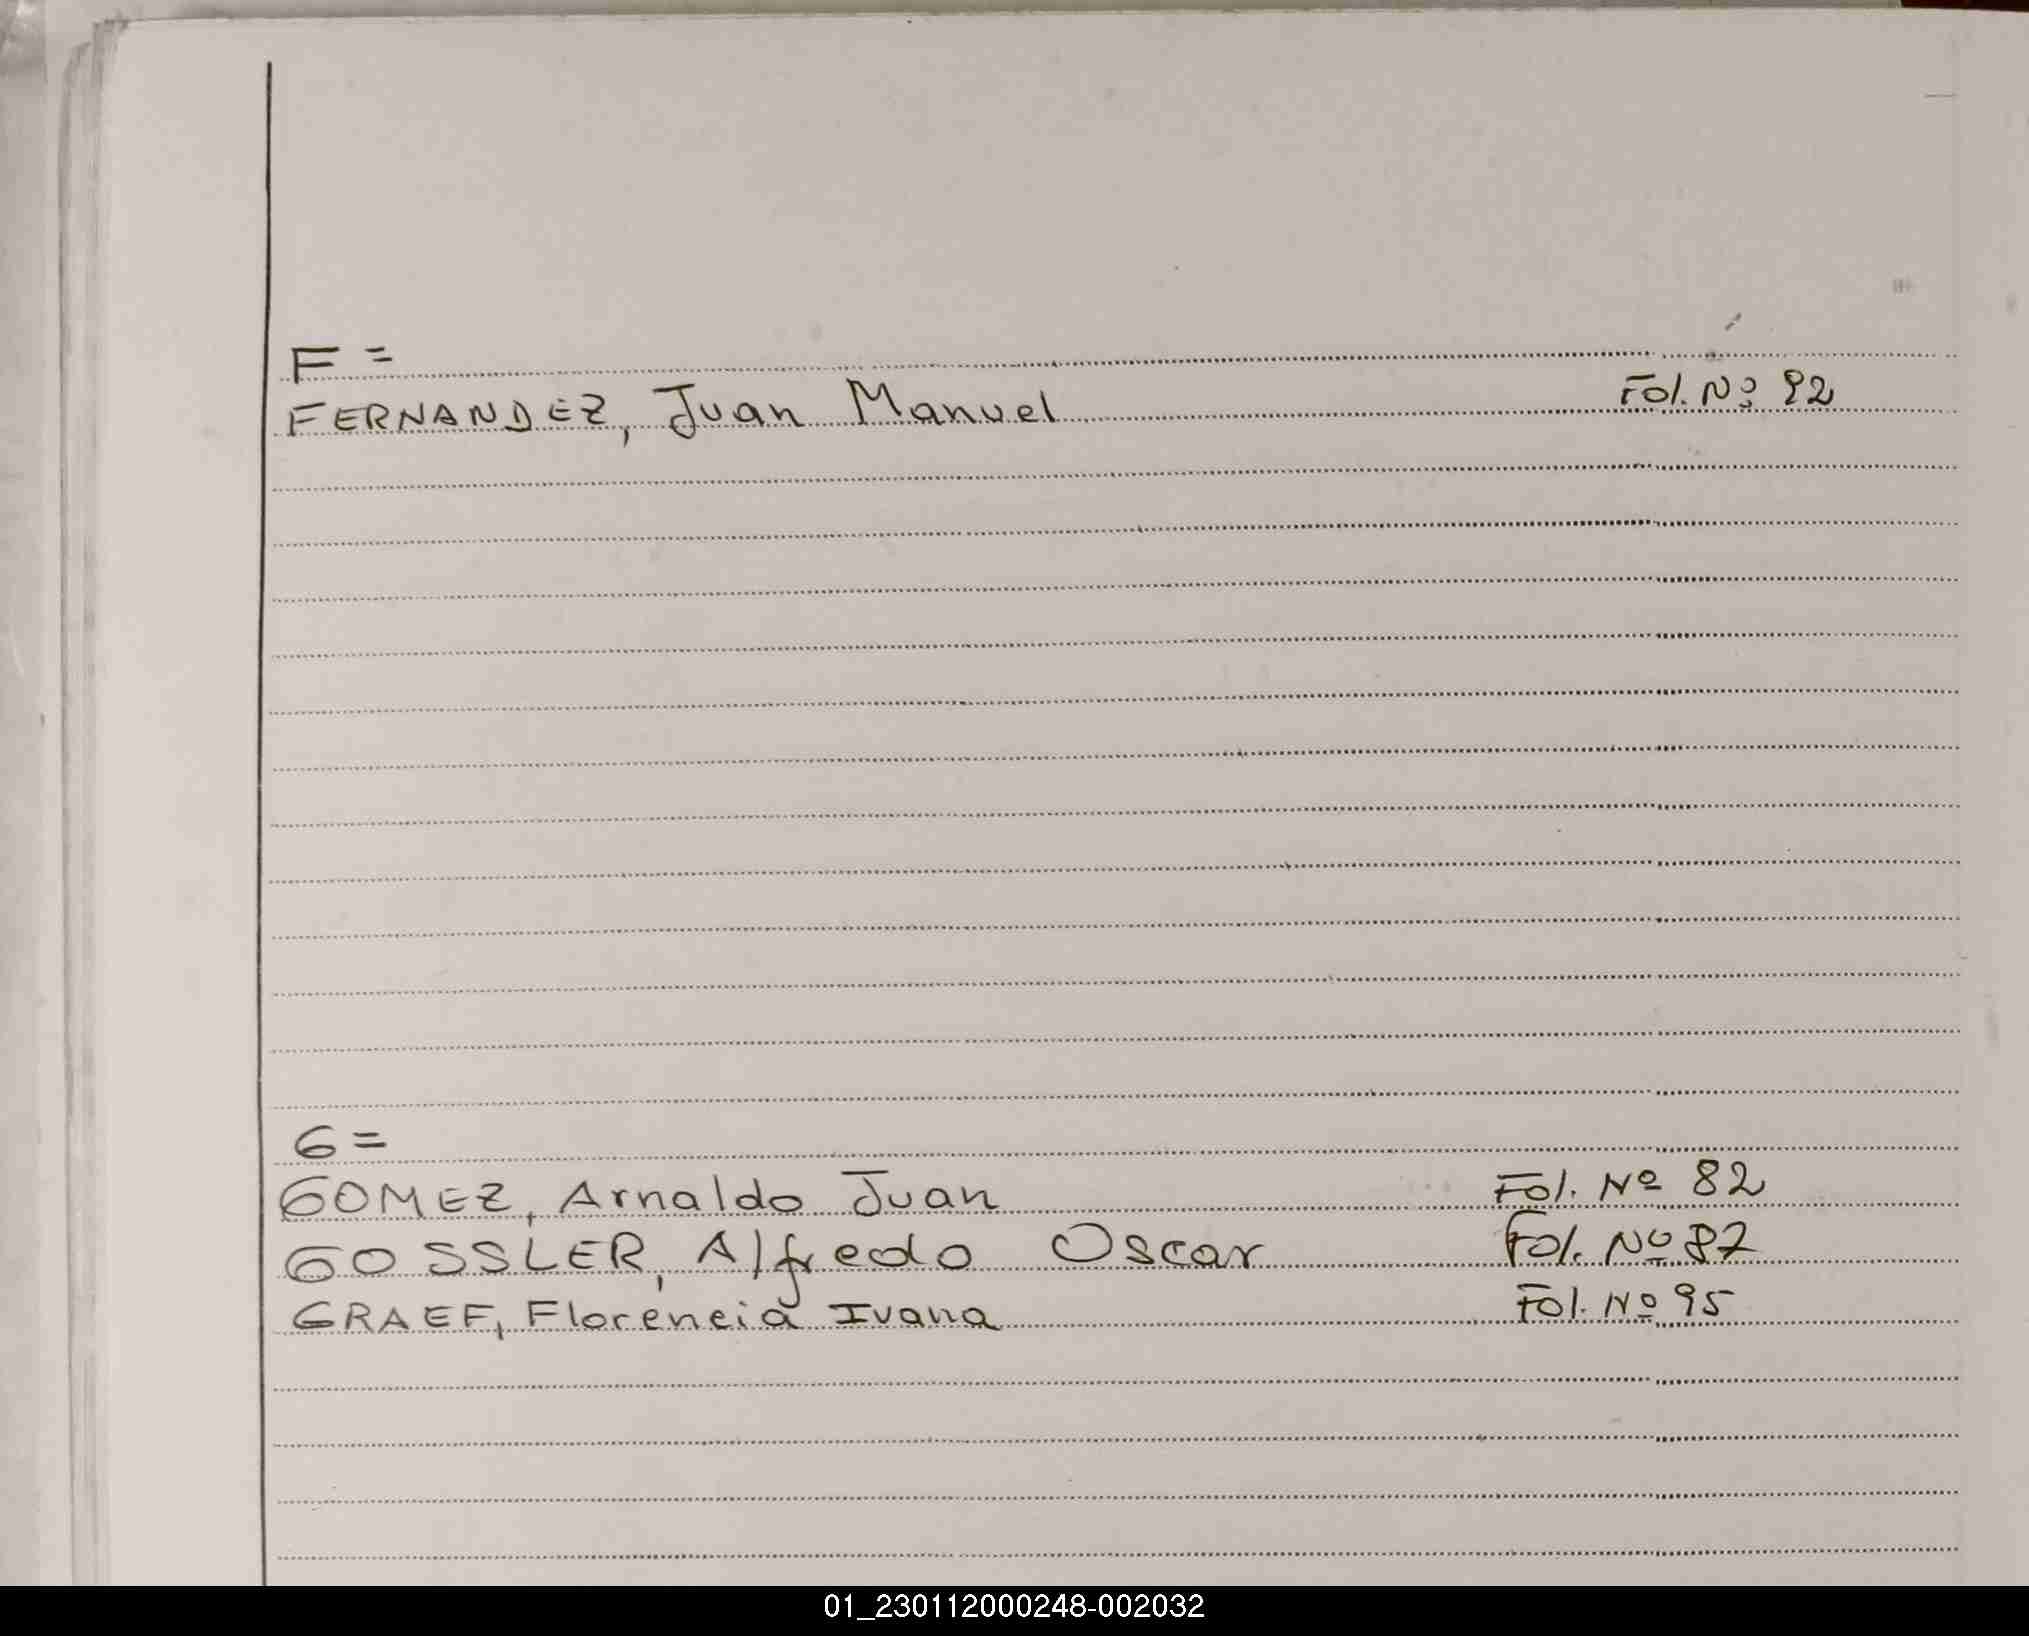 F =
FERNANDEZ, Juan Manuel Fol. Nº 92
G =
GOMEZ, Arnaldo Juan Fol. Nº 82
GOSSLER, Alfredo Oscar Fol. Nº 87
GRAEF, Florencia Ivana Fol. Nº 95
01_230112000248-002032